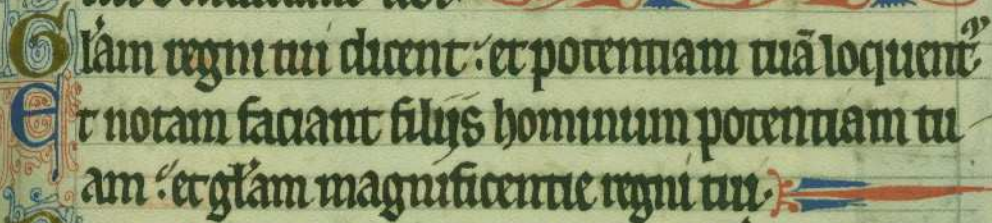 Gl̃am regni tui dicent: et potentiam tuã loquentᷣ.
Et notam faciant filijs hominum potentiam tu
am: et gl̃am magnificentie regni tui.